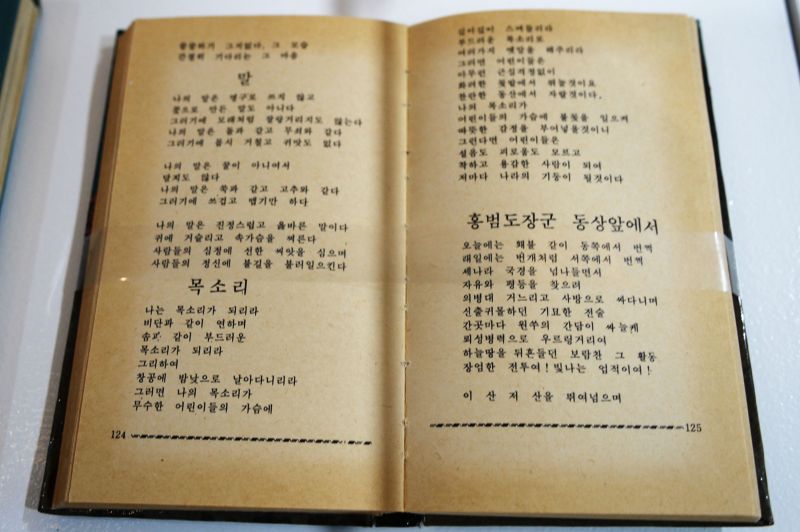 간절히 기다리는 그 마음
말
나의 말은 영구로 쓰지 않고
꽃으로 만든 말도 아니다
그러기에 모래처럼 찰랑거리지도 않는다
나의 말은 돌과 같고 무쇠와 같다
그러기에 몹시 거칠고 귀맛도 없다
나의 말은 꿀이 아니여서
달지도 않다
나의 말은 쑥과 같고 고추와 같다
그러기에 쓰겁고 맵기만 하다
나의 말은 진정스럽고 옳바른 말이다
귀에 거슬리고 속가슴을 쩌른다
사람들의 심정에 선한 씨앗을 심으며
사람들의 정신에 불길을 불러일으킨다
목소리
나는 목소리가 되리라
비단과 같이 연하며
솜과 같이 부드러운
목소리가 되리라
그리하여
창공에 밤낮으로 날아다니리라
그러면 나의 목소리가
무수한 어린이들의 가슴에
124
깊이깊이 스며들리라
부드러운 목소리로
여러가지 옛말을 해주리라
그러면 어린이들은
아무런 근심걱정없이
화려한 꽃밭에서 뛰놀것이요
찬란한 동산에서 자랄것이다.
나의 목소리가
어린이들의 가슴에 불꽃을 일으켜
따뜻한 감정을 부어넣을것이니
그런다면 어린이들은
설음도 괴로움도 모르고
착하고 용감한 사람이 되여
저마다 나라의 기둥이 될것이다
홍범도장군 동상앞에서
오늘에는 홰불 같이 동쪽에서 번쩍
래일에는 번개처럼 서쪽에서 번쩍
세나라 국경을 넘나들면서
자유와 평등을 찾으려
의병대 거느리고 사방으로 싸다니며
신출귀몰하던 기묘한 전술
간곳마다 원쑤의 간담이 싸늘케
뢰성벽력으로 우르렁거리여
하늘땅을 뒤흔들던 보람찬 그 활동
장엄한 전투여! 빛나는 업적이여!
이 산 저 산을 뛰여넘으며
125